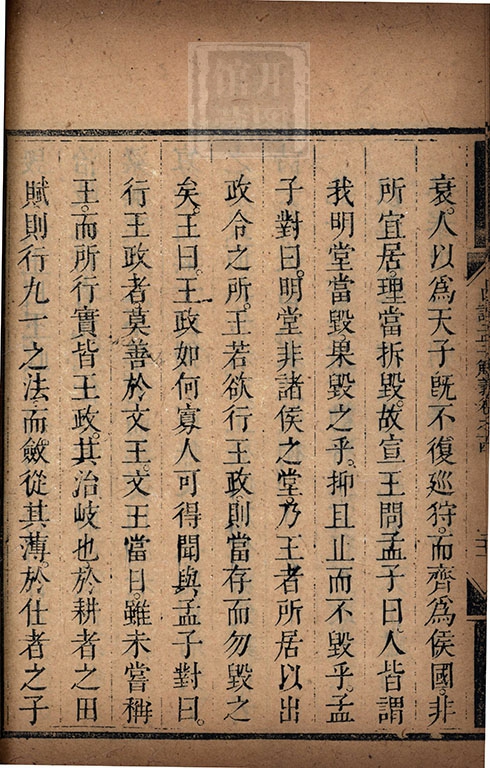 衰。人以爲天子旣不復巡狩。而齊爲侯國。非
所宜居。理當拆毀。故宣王問孟子曰。人皆謂
我明堂當毀。果毀之乎。抑且止而不毀乎。孟
子對曰。明堂非諸侯之堂。乃王者所居以出
政令之所。王若欲行王政。則當存而勿毀之
矣。王曰。王政如何。寡人可得聞與。孟子對曰。
行王政者莫善於文王。文王當日。雖未嘗稱
王。而所行實皆王政。其治岐也。於耕者之田
賦。則行九一之法。而斂從其薄。於仕者之子